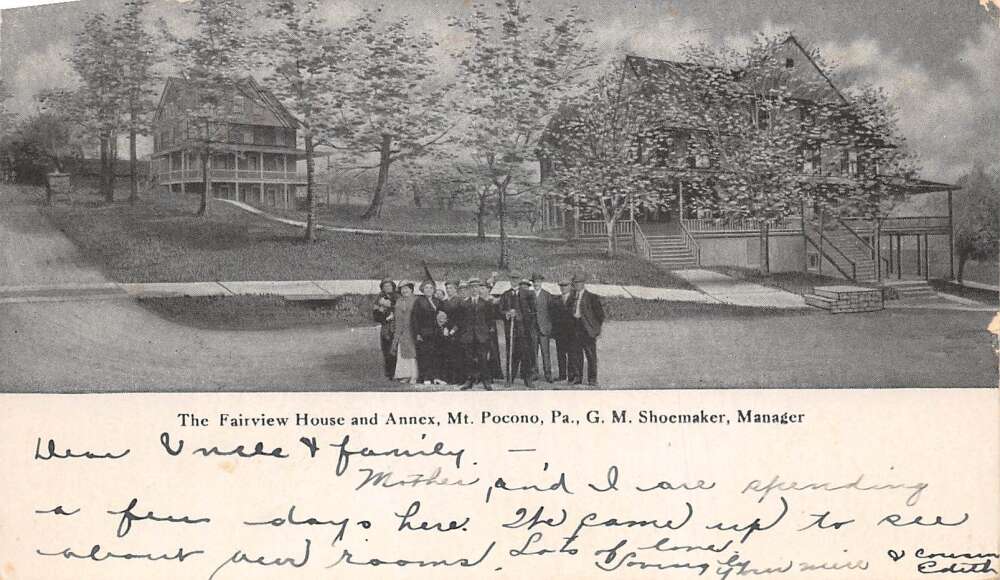 The Fairview House and Annex, Mt. Pocono, Pa., G. M. Shoemaker, Manager
Dear Uncle & family. —
Mother, and I are spending
a few days here. We came up to see
about our rooms. Lots of love,
Lovingly your niece
& cousin
Edith